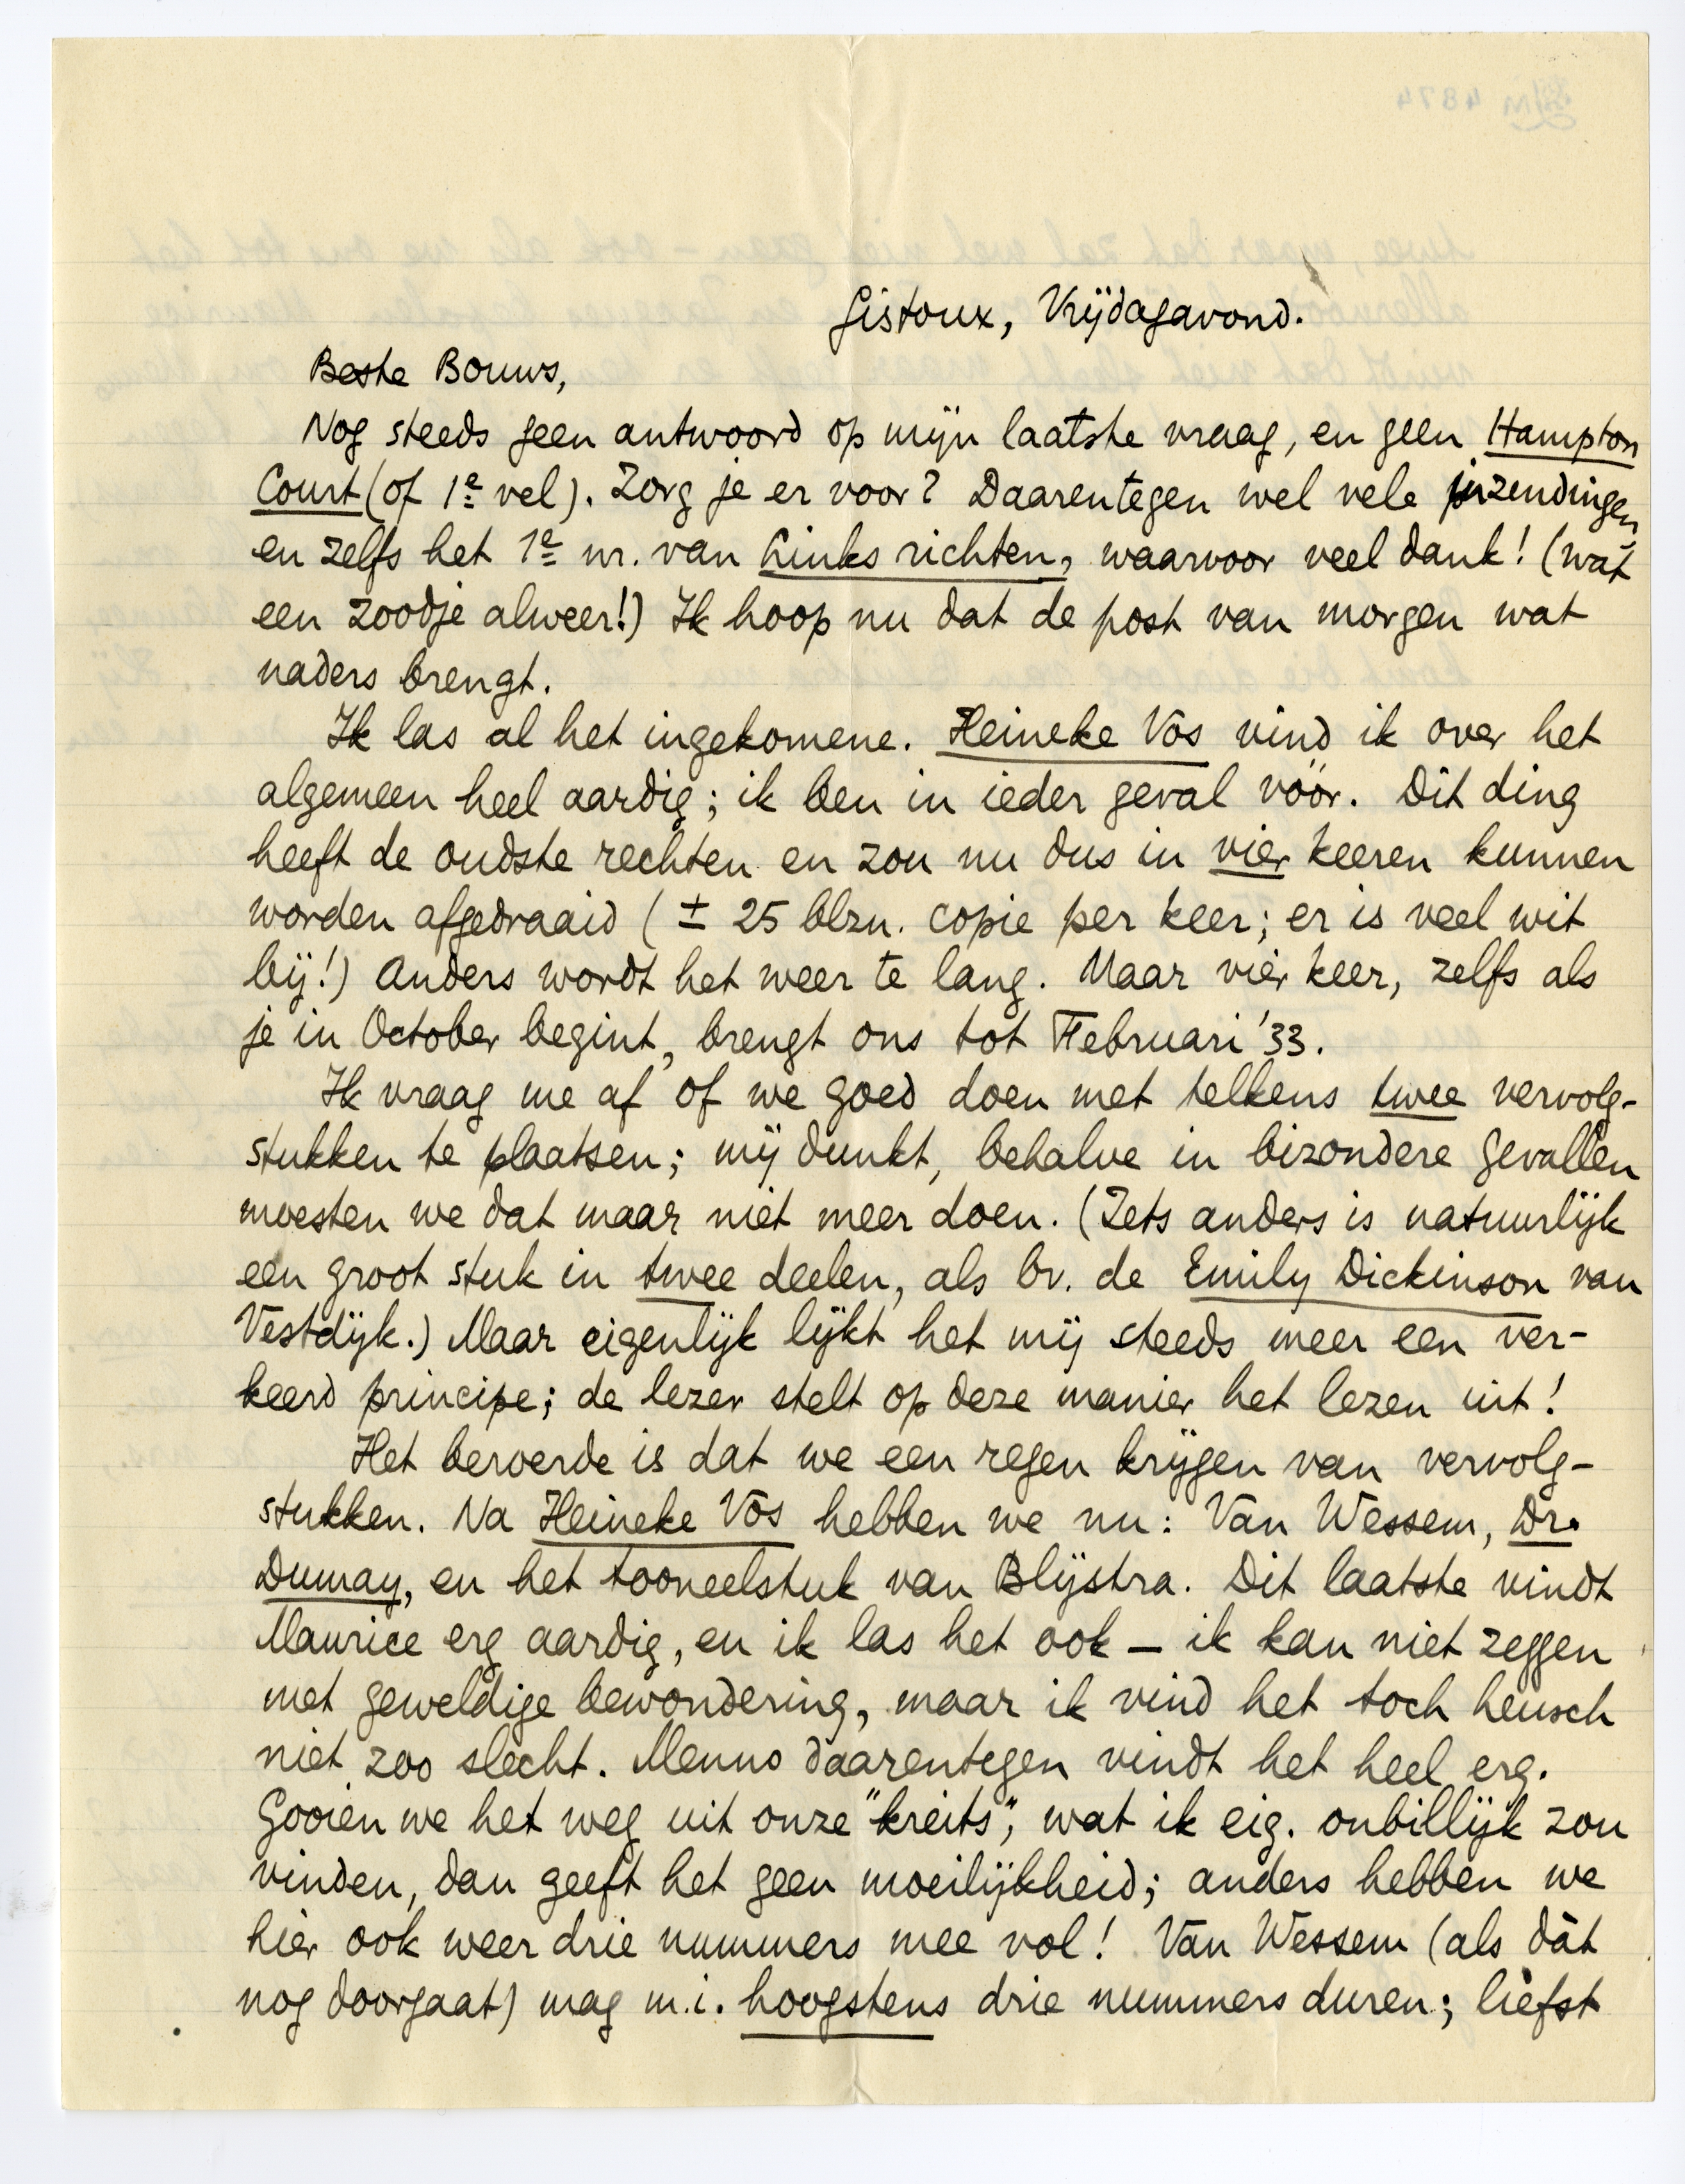 Gistoux, Vrijdagavond.
Beste Bouws,
Nog steeds geen antwoord op mijn laatste vraag, en geen Hampton
Court (of 1e vel). Zorg je er voor? Daarentegen wel vele inzendingen
en zelfs het 1e nr. van Links richten, waarvoor veel dank! (wat
een zoodje alweer!) Ik hoop nu dat de post van morgen wat
naders brengt.
Ik las al het ingekomene. Heineke Vos vind ik over het
algemeen heel aardig; ik ben in ieder geval vóór. Dit ding
heeft de oudste rechten en zou nu dus in vier keeren kunnen
worden afgedraaid (± 25 blzn. copie per keer; er is veel wit
bij!) Anders wordt het weer te lang. Maar vier keer, zelfs als
je in October begint, brengt ons tot Februari '33.
Ik vraag me af of we goed doen met telkens twee vervolg-
stukken te plaatsen; mij dunkt, behalve in bizondere gevallen
moesten we dat maar niet meer doen. (Iets anders is natuurlijk
een groot stuk in twee deelen, als bv. de Emily Dickinson van
Vestdijk.) Maar eigenlijk lijkt het mij steeds meer een ver-
keerd principe; de lezer stelt op deze manier het lezen uit!
Het beroerde is dat we een regen krijgen van vervolg-
stukken. Na Heineke Vos hebben we nu: Van Wessem, Dr.
Dumay, en het tooneelstuk van Blijstra. Dit laatste vindt
Maurice erg aardig, en ik las het ook – ik kan niet zeggen
met geweldige bewondering, maar ik vind het toch heusch
niet zoo slecht. Menno daarentegen vindt het heel erg.
Gooien we het weg uit onze "kreits", wat ik eig. onbillijk zou
vinden, dan geeft het geen moeilijkheid; anders hebben we
hier ook weer drie nummers mee vol! Van Wessem (als dàt
nog doorgaat) mag m.i. hoogstens drie nummers duren; liefst